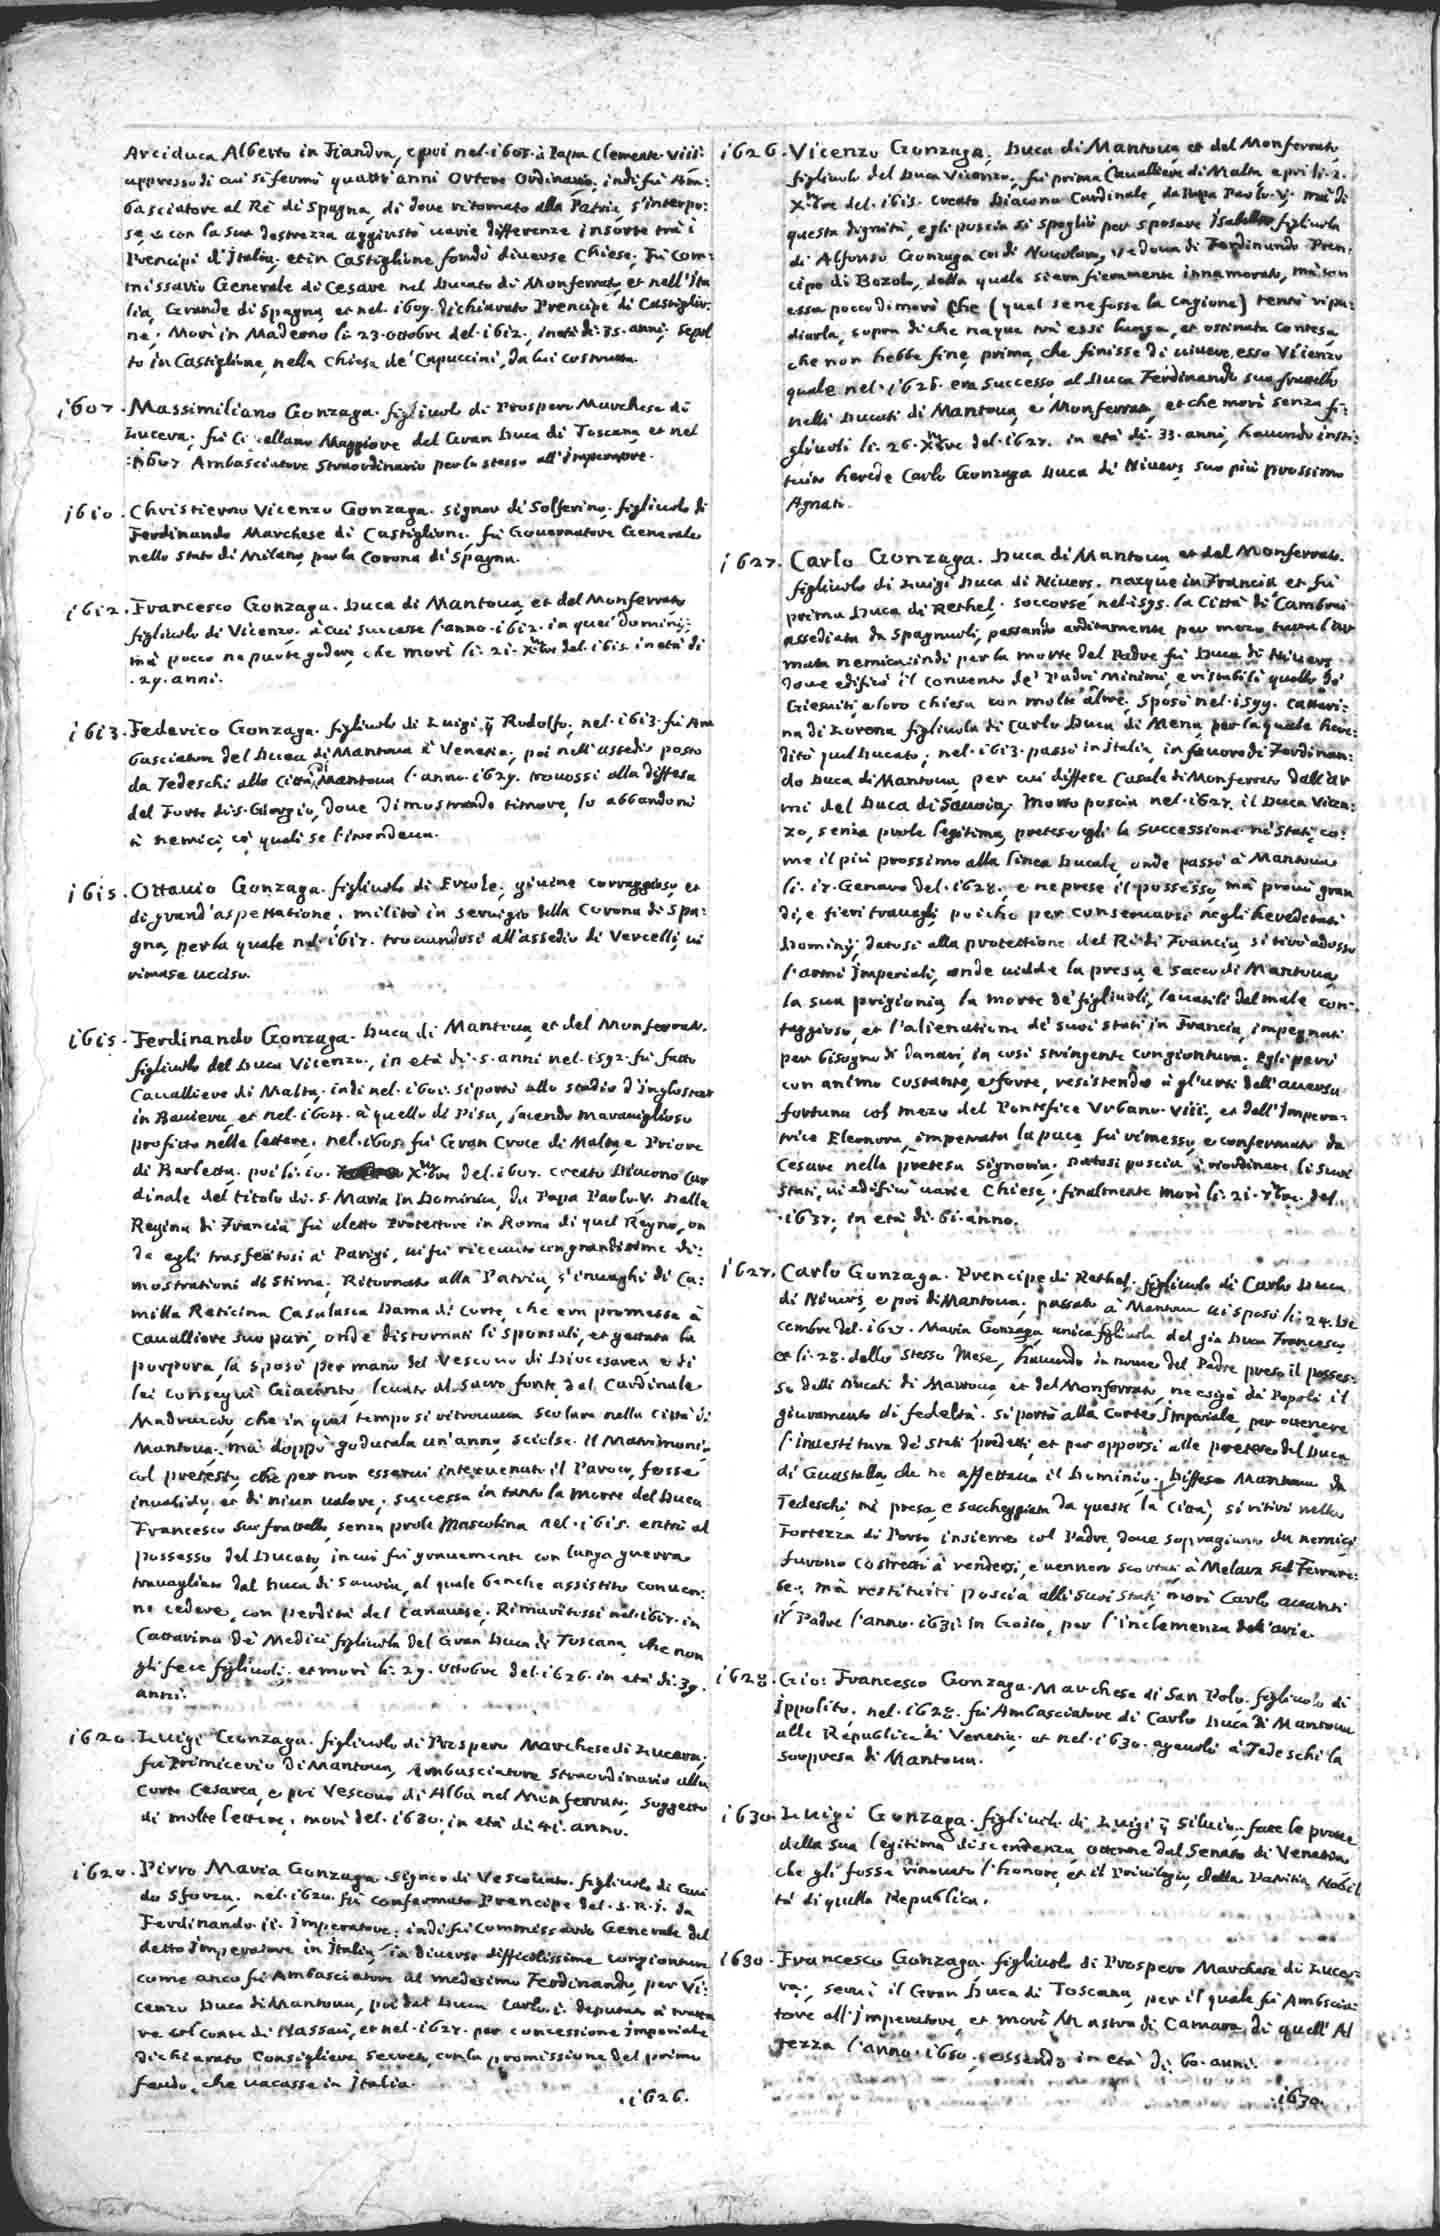 Arciduca Alberto in Fiandra, e poi nel 1605. à Papa Clemente. VIII:
appresso di cui si fermò quattr'anni Ortore Ordinario. indi fù Am:
basciatore al Rè di Spagna, di doue ritornato alla Patria, s'interpo:
se, e con la sua destrezza aggiustò uarie differenze insorte trà i
Prencipi d'Italia. et in Castiglione fondò diuerse Chiese. Fù Com:
missario Generale di Cesare nel Ducato di Monferrato, et nell'Ita
lia, Grande di Spagna, et nel. 1609. dichiarato Prencipe di Castiglio:
ne; Morì in Maderno li 23. ottobre del. 1612. in età di. 35. anni, sepol
to in Castiglione, nella Chiesa de' Capuccini, da lui costrutta.
1607. Massimiliano Gonzaga. figliuolo di Prospero Marchese di
Luzera; fù Ci ellano Maggiore del Gran Duca di Toscana, et nel
1607 Ambasciatore Straordinario per lo stesso all'Imperatore.
1610. Christierno Vicenzo Gonzaga. signor di Solferino. figliuolo di
Ferdinando Marchese di Castiglione. fù Gouernatore Generale
nello stato di Milano, per la Corona di Spagna.
1612. Francesco Gonzaga. Duca di Mantoua, et del Monferrato,
figliuolo di Vicenzo. à cui successe l'anno. 1612. in quei Dominij;
mà pocco ne puote godere, che morì li. 21. Xbre del. 1612. in età di
. 29. anni.
1613. Federico Gonzaga. figliuolo di Luigi, q Rodolfo. nel. 1613. fù Am
basciatore del Duca di Mantoua à Venetia; poi nell'assedio posto
da Tedeschi alla Città di Mantoua l'anno. 1629. trouossi alla diffesa
del Forte di S. Giorgio, doue dimostrando timore, lo abbandonò
à nemici, co' quali se l'intendeua.
1615. Ottauio Gonzaga. figliuolo di Ercole. giouine corraggioso, et
di grand'aspettatione. militò in seruigio della Corona di Spa:
gna, per la quale nel. 1617. trouandosi all'assedio di Vercelli, ui
rimase ucciso.
1615. Ferdinando Gonzaga. Duca di Mantoua, et del Monferrato.
figliuolo del Duca Vicenzo., in età di. 5. anni nel. 1592. fù fatto
Caualliere di Malta. indi nel. 1601. si portò allo studio d'Inglostat
in Bauiera, et nel. 1604. à quello di Pisa, facendo marauiglioso
profitto nelle lettere. nel. 1605. fù Gran Croce di Malta, e Priore
di Barletta. poi li. 10. Xbre del. 1607. creato Diacono Car
dinale del titolo di. S. Maria in Dominica, da Papa Paolo. V. Dalla
Regina di Francia fù eletto Protettore in Roma di quel Regno, on
de egli trasferitosi à Parigi, ui fù riceuuto con grandissime di:
mostrationi di stima. Ritornato alla Patria, s'inuaghì di Ca:
milla Reticina Casalasca Dama di Corte, che era promessa à
Caualliere suo pari, onde disturnati li sponsali, et gettata la
porpora, la sposò per mano del Vescouo di Diocesarea, e di
lei conseguì Giacinto, leuato al Sacro fonte, dal Cardinale
Madruccio, che in quel tempo si ritrouaua Scolare nella Città di
Mantoua. mà doppò goduta la un'anno, sciolse il Matrimonio
col pretesto, che per non esserui interuenuto il Paroco, fosse
inualido, et di niun ualore. successa in tanto la morte del Duca
Francesco suo fratello, senza prole Mascolina nel. 1615. entrò al
possesso del Ducato, in cui fù grauemente con lunga guerra
trauagliato dal Duca di Sauoia, al quale benche assistito conuen:
ne cedere, con perdita del Canauese. Rimaritossi nel. 1617. in
Cattarina de' Medici figliuola del Gran Duca di Toscana, che non
gli fece figliuoli; et morì li. 29. Ottobre del. 1626. in età di. 39.
anni.
1620. Luigi Gonzaga. figliuolo di Prospero Marchese di Luzara;
fù Primicerio di Mantoua, Ambasciatore Straordinario alla
Corte Cesarea, e poi Vescouo di Alba nel Monferrato; soggetto
di molte lettere. morì del. 1630. in età di 41. anno.
1620. Pirro Maria Gonzaga. signor di Vescouato. figliuolo di Gui
do Sforza. nel. 1620. fù confermato Prencipe del. S. R. I. da
Ferdinando. II. Imperatore. indi fù Commissario Generale del
detto Imperatore in Italia, in diuerse difficilissime congionture
come anco fù Ambasciatore al medesimo Ferdinando, per Vi:
cenzo Duca di Mantoua, poi dal Duca Carlo. I. deputato à tratta
re col Conte di Nassau, et nel. 1627. per concessione Imperiale
dichiarato Consigliere secreto, con la promissione del primo
feudo, che uacasse in Italia.
. 1626.
1626. Vicenzo Gonzaga, Duca di Mantoua, et del Monferrato,
figliuolo del Duca Vicenzo. fù prima Caualliere di Malta e poi li. 2.
Xbre del. 1615. creato Diacono Cardinale, da Papa Paolo. V. mà di
questa dignità, egli poscia si spogliò per sposare Isabella, figliuola
di Alfonso Gonzaga Co: di Nouolara, Vedoua di Ferdinando Pren:
cipe di Bozolo, della quale si era fieramente innamorato, mà con
essa pocco dimorò che (qual se ne fosse la cagione) tentò ripu:
diarla, sopra di che naque trà essi lunga, et ostinata contesa,
che non hebbe fine, prima, che finisse di uiuere, esso Vicenzo
quale nel. 1626. era successo, al Duca Ferdinando suo fratello
nelli Ducati di Mantoua, e Monferrato, et che morì senza fi:
gliuoli li. 26. Xbre del. 1627. in età di. 33. anni, hauendo insti:
tuito herede Carlo Gonzaga Duca di Niuers, suo più prossimo
Agnato.
1627. Carlo Gonzaga. Duca di Mantoua, et del Monferrato.
figliuolo di Luigi Duca di Niuers. nacque in Francia, et fù
prima Duca di Rethel. soccorse nel. 1595. la Città di Cambrai
assediata da Spagnuoli, passando arditamente per mezo tutta l'ar
mata nemica. indi per la morte del Padre fù Duca di Niuers
doue edificò il conuento de' Padri Minimi, e ristabilì quello de'
Giesuiti, e loro chiesa con molte altre. Sposò nel. 1599. Cattari:
na di Lorena figliuola di Carlo Duca di Mena, per la quale here:
ditò quel Ducato. nel. 1613. passò in Italia, in fauore di Ferdinan:
do Duca di Mantoua, per cui diffese Casale di Monferrato dall'ar
mi del Duca di Sauoia. Morto poscia nel. 1627. il Duca Vicen:
zo, senza prole legitima, pretese egli la successione ne' stati, co:
me il più prossimo alla linea Ducale, onde passò à Mantoua
li. 17. Genaro del. 1628. e ne prese il possesso, mà prouò gran
di, e fieri trauagli, poiche per conseruarsi negli hereditati
Dominij, datosi alla protettione del Rè di Francia, si tirò adosso
l'armi Imperiali, onde uidde la presa, e sacco di Mantoua,
la sua prigionia, la morte de' figliuoli, leuatili dal male con:
taggioso, et l'alienatione de' suoi stati in Francia, impegnati
per bisogno di danari, in così stringente congiontura. Egli però
con animo costante, e forte, resistendo à gl'urti dell'auuersa
fortuna col mezo del Pontefice Vrbano. VIII., et dell'Impera:
trice Eleonora, impetrata la pace, fù rimesso, e confermato da
Cesare nella pretesa Signoria. Datosi poscia à riordinare li suoi
stati, ui edificò uarie Chiese. finalmente morì li. 21. 7bre. del.
. 1637. in età di. 61. anno.
1627. Carlo Gonzaga. Prencipe di Rethel. figliuolo di Carlo Duca
di Niuers, e poi di Mantoua; passato à Mantoua ui sposò li. 24. De
cembre del. 1627. Maria Gonzaga, unica figliuola del già Duca Francesco,
et li. 28. dello stesso Mese, hauendo in nome del Padre preso il posses:
so delli Ducati di Mantoua, et del Monferrato, ne esigè da' Popoli il
giuramento di fedeltà. Si portò alla Corte Imperiale, per ottenere
l'inuestitura de' stati predetti, et per opporsi alle pretese del Duca
di Guastalla, che ne affettaua il Dominio. Diffese Mantoua da
Tedeschi, mà presa, e saccheggiata da queste la Città, si ritirò nella
Fortezza di Porto, insieme col Padre, doue sopragiunto da nemici,
furono costretti à rendersi, e uennero scortati à Melara sul Ferrare:
se., mà restituiti poscia alli suoi stati, morì Carlo auanti
il Padre l'anno. 1631. in Goito, per l'inclemenza dell'aria.
1628. Gio: Francesco Gonzaga. Marchese di San Polo. figliuolo di
Ippolito. nel. 1628. fù Ambasciatore di Carlo Duca di Mantoua
alla Republica di Venetia. et nel. 1630. ageuolò à Tedeschi la
sorpresa di Mantoua.
1630. Luigi Gonzaga. figliuolo di Luigi q Siluio. fatte le proue
della sua legitima discendenza ottenne dal Senato di Venetia,
che gli fosse rinouato l'honore, et il Priuilegio, della Patritia Nobil
tà di quella Republica.
1630. Francesco Gonzaga. figliuolo di Prospero Marchese di Luzer:
ra; seruì il Gran Duca di Toscana, per il quale fù Ambscia:
tore all'Imperatore, et morì Mastro di Camara, di quell'Al
tezza l'anno. 1650. essendo in età di. 60. anni.
. 1630.